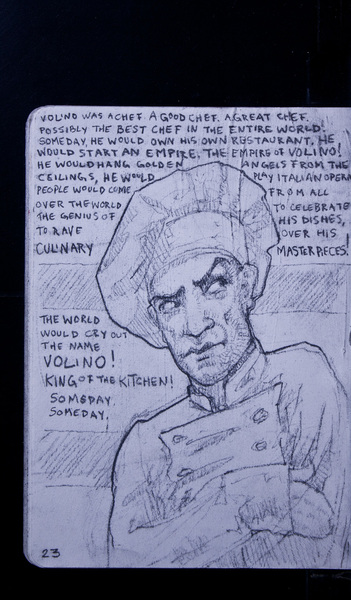 VOLINO WAS A CHEF. A GOOD CHEF. A GREAT CHEF.
POSSIBLY THE BEST CHEF IN THE ENTIRE WORLD!
SOMEDAY, HE WOULD OWN HIS OWN RESTAURANT, HE
WOULD START AN EMPIRE. THE EMPIRE OF VOLINO!
HE WOULD HANG GOLDEN ANGELS FROM THE
CEILINGS, HE WOULD PLAY ITALIAN OPERA
PEOPLE WOULD COME FROM ALL
OVER THE WORLD TO CELEBRATE
THE GENIUS OF HIS DISHES,
TO RAVE OVER HIS
CULINARY MASTERPIECES!
THE WORLD
WOULD CRY OUT
THE NAME
VOLINO!
KING OF THE KITCHEN!
SOMEDAY.
SOMEDAY.
23